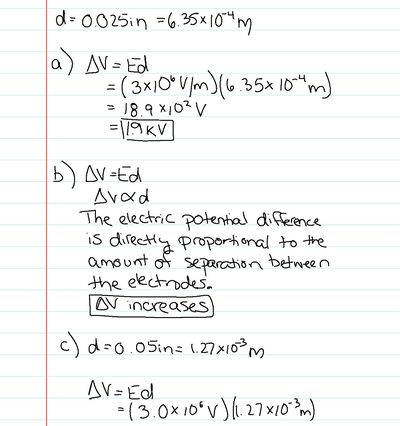 d = 0.025in = 6.35×10⁻⁴m
a) ΔV = Ed
= (3×10⁶ V/m)(6.35×10⁻⁴m)
= 18.9×10² V
= 1.9 kV
b) ΔV = Ed
ΔV ∝ d
The electric potential difference
is directly proportional to the
amount of separation between
the electrodes.
ΔV increases
c) d = 0.05in = 1.27×10⁻³m
ΔV = Ed
= (3.0×10⁶ V)(1.27×10⁻³m)